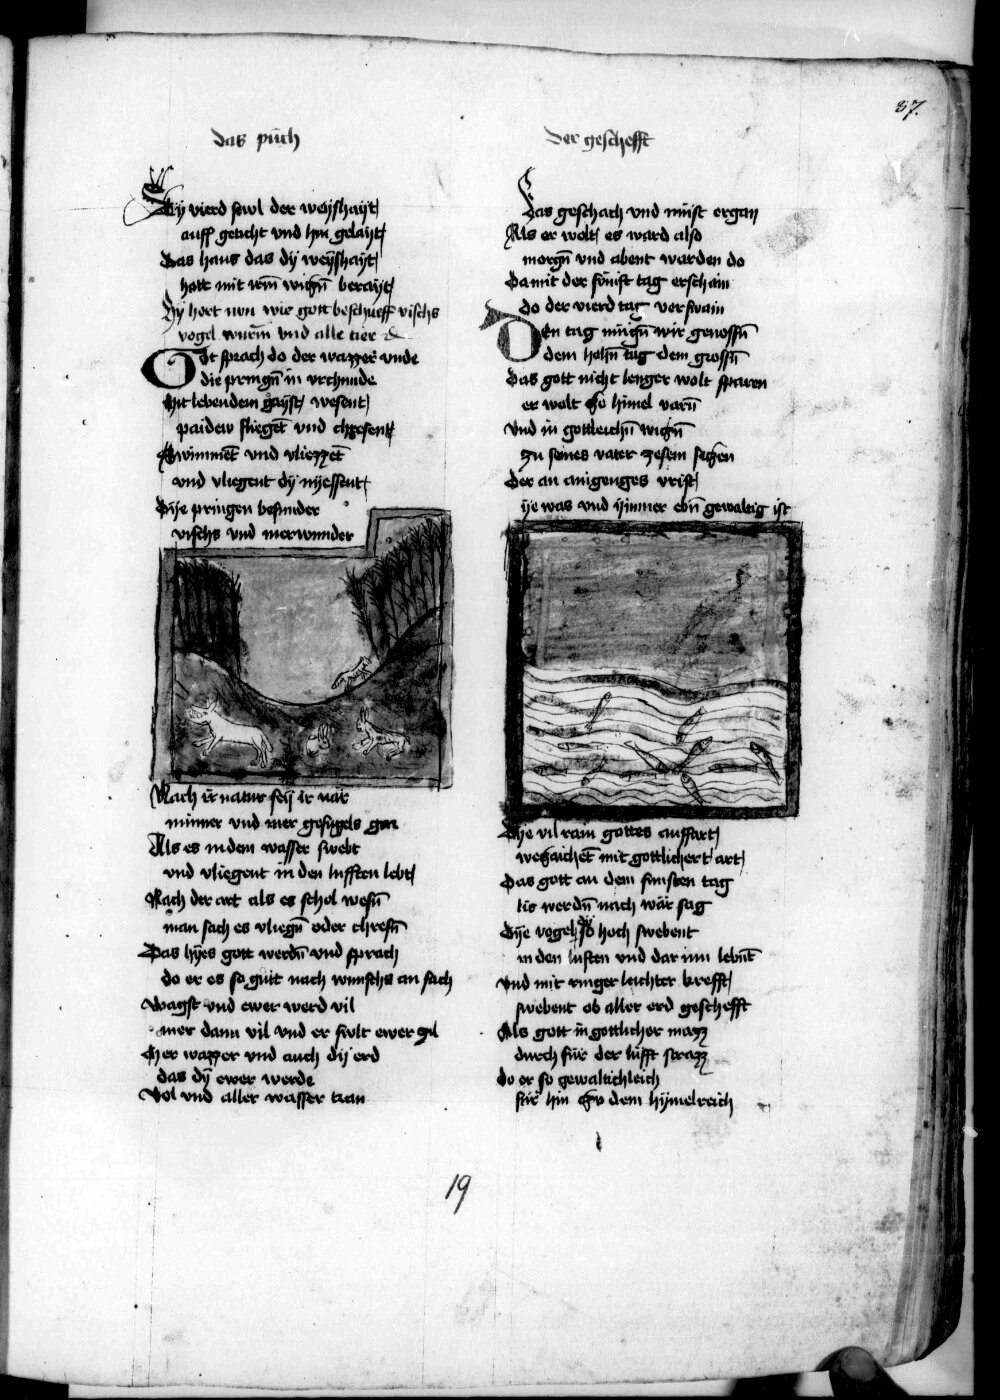 87.
das püch
der geschefft
Dy vierd sawl der weyshayt
auff gericht vnd hin gelayt
Das haus das dy weyshayt
hatt mit irm wiczn̄ berayt
Hy hort nun wie gott beschueff vischs
vogel wurm̄ vnd alle tier
Got sprach do der wazzer vnde
die pringn̄ in vrchunde
Mit lebendem gayst wesent
paidew flieget̄ vnd chresent
Swimmet̄ vnd vliezzet̄
vnd vliegent dy nyessent
Dye pringen besunder
vischs vnd merwunder
Nach ir natur sey ir nar
minner vnd mer gefugels gar
Als es in dem wasser swebt
vnd vliegent in den lufften lebt
Nach der art als es schol wesn̄
man sach es vliegn̄ oder chresn̄
Das hyes gott werdn̄ vnd sprach
do er es so guit nach wunschs an sach
Wagst vnd ewer werd vil
mer dann vil vnd er fult ewer zil
Mer wazzer vnd auch dy erd
das dy ewer werde
Vol vnd aller wasser tran
Das geschach vnd muist ergan
Als er wolt es ward also
morgn̄ vnd abent warden do
Da mit der funift tag erschain
do der vierd tag verswain
Den tag mugn̄ wir genossn̄
dem heln̄ tag dem grossn̄
Das gott nicht lenger wolt sparen
er wolt zo himel varn̄
Vnd in gottleichn̄ wiczn̄
zu seines vater zesem siczen
Der an anigenges vrist
ye was vnd ymmer ebn̄ gewaltig ist
Dye vil rain gottes auffart
wezaichet̄ mit gottlichert art
Das gott an dem funften tag
lis werdn̄ nach wär sag
Dye vogel so hoch swebent
in den luften vnd dar inn lebnt̄
Vnd mit ringer leichter krefft
swebent ob aller erd geschefft
Als gott in gottlicher mazz
durch fuir der lufft strazz
do er so gewaltichleich
fuir hin czu dem hymelreich
19